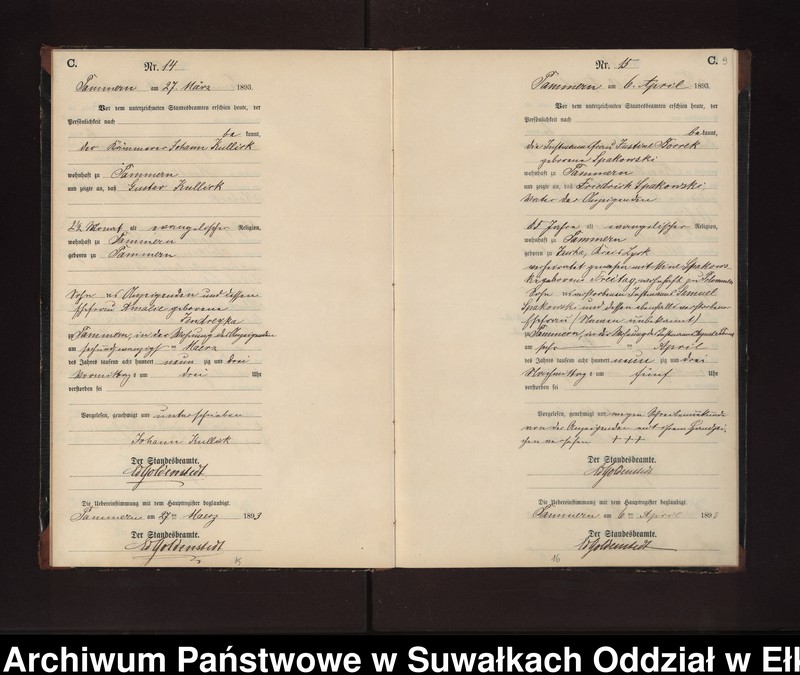 C.
Nr. 14
Tammern am 27. März 1893.
Vor dem unterzeichneten Standesbeamten erschien heute, der
Persönlichkeit nach
be kannt,
der Johann Kullick
wohnhaft zu Tammern
und zeigte an, daß Gustav Kullick
2½ Monat alt evangelischer Religion,
wohnhaft zu Tammern
geboren zu Tammern
Sohn des Anzeigenden und dessen
Ehefrau Amalie geborene
zu Tammern, in der Wohnung des Anzeigenden
am sechsundzwanzigsten Maerz
des Jahres tausend acht hundert neun zig und drei
Vormittags um drei Uhr
verstorben sei
Vorgelesen, genehmigt und unterschrieben
Johann Kullick
Der Standesbeamte.
Goldenstedt
Die Uebereinstimmung mit dem Hauptregister beglaubigt.
Tammern am 27ten Maerz 1893
Der Standesbeamte.
Goldenstedt
15
C.
9
Nr. 15
Tammern am 6. April 1893.
Vor dem unterzeichneten Standesbeamten erschien heute, der
Persönlichkeit nach
be kannt,
die Instmannsfrau Justine
geborene Spakowski
wohnhaft zu Tammern
und zeigte an, daß Friedrich Spakowski,
Vater der Anzeigenden
65 Jahre alt evangelischer Religion,
wohnhaft zu Tammern
geboren zu Kreis Lyck
verheiratet gewesen mit
geborene Freitag, wohnhaft zu
Sohn des verstorbenen Instmanns Samuel
Spakowski und dessen ebenfalls verstorbener
Ehefrau (Namen unbekannt)
zu Tammern, in der Wohnung des Instmann
am April
des Jahres tausend acht hundert neun zig und drei
Nachmittags um fünf Uhr
verstorben sei
Vorgelesen, genehmigt und wegen Schreibensunkunde
von der Anzeigenden mit ihrem Handzei-
chen versehen +++
Der Standesbeamte.
Goldenstedt
Die Uebereinstimmung mit dem Hauptregister beglaubigt.
Tammern am 6ten April 1893
Der Standesbeamte.
Goldenstedt
16
Archiwum Państwowe w Suwałkach Oddział w Ełk